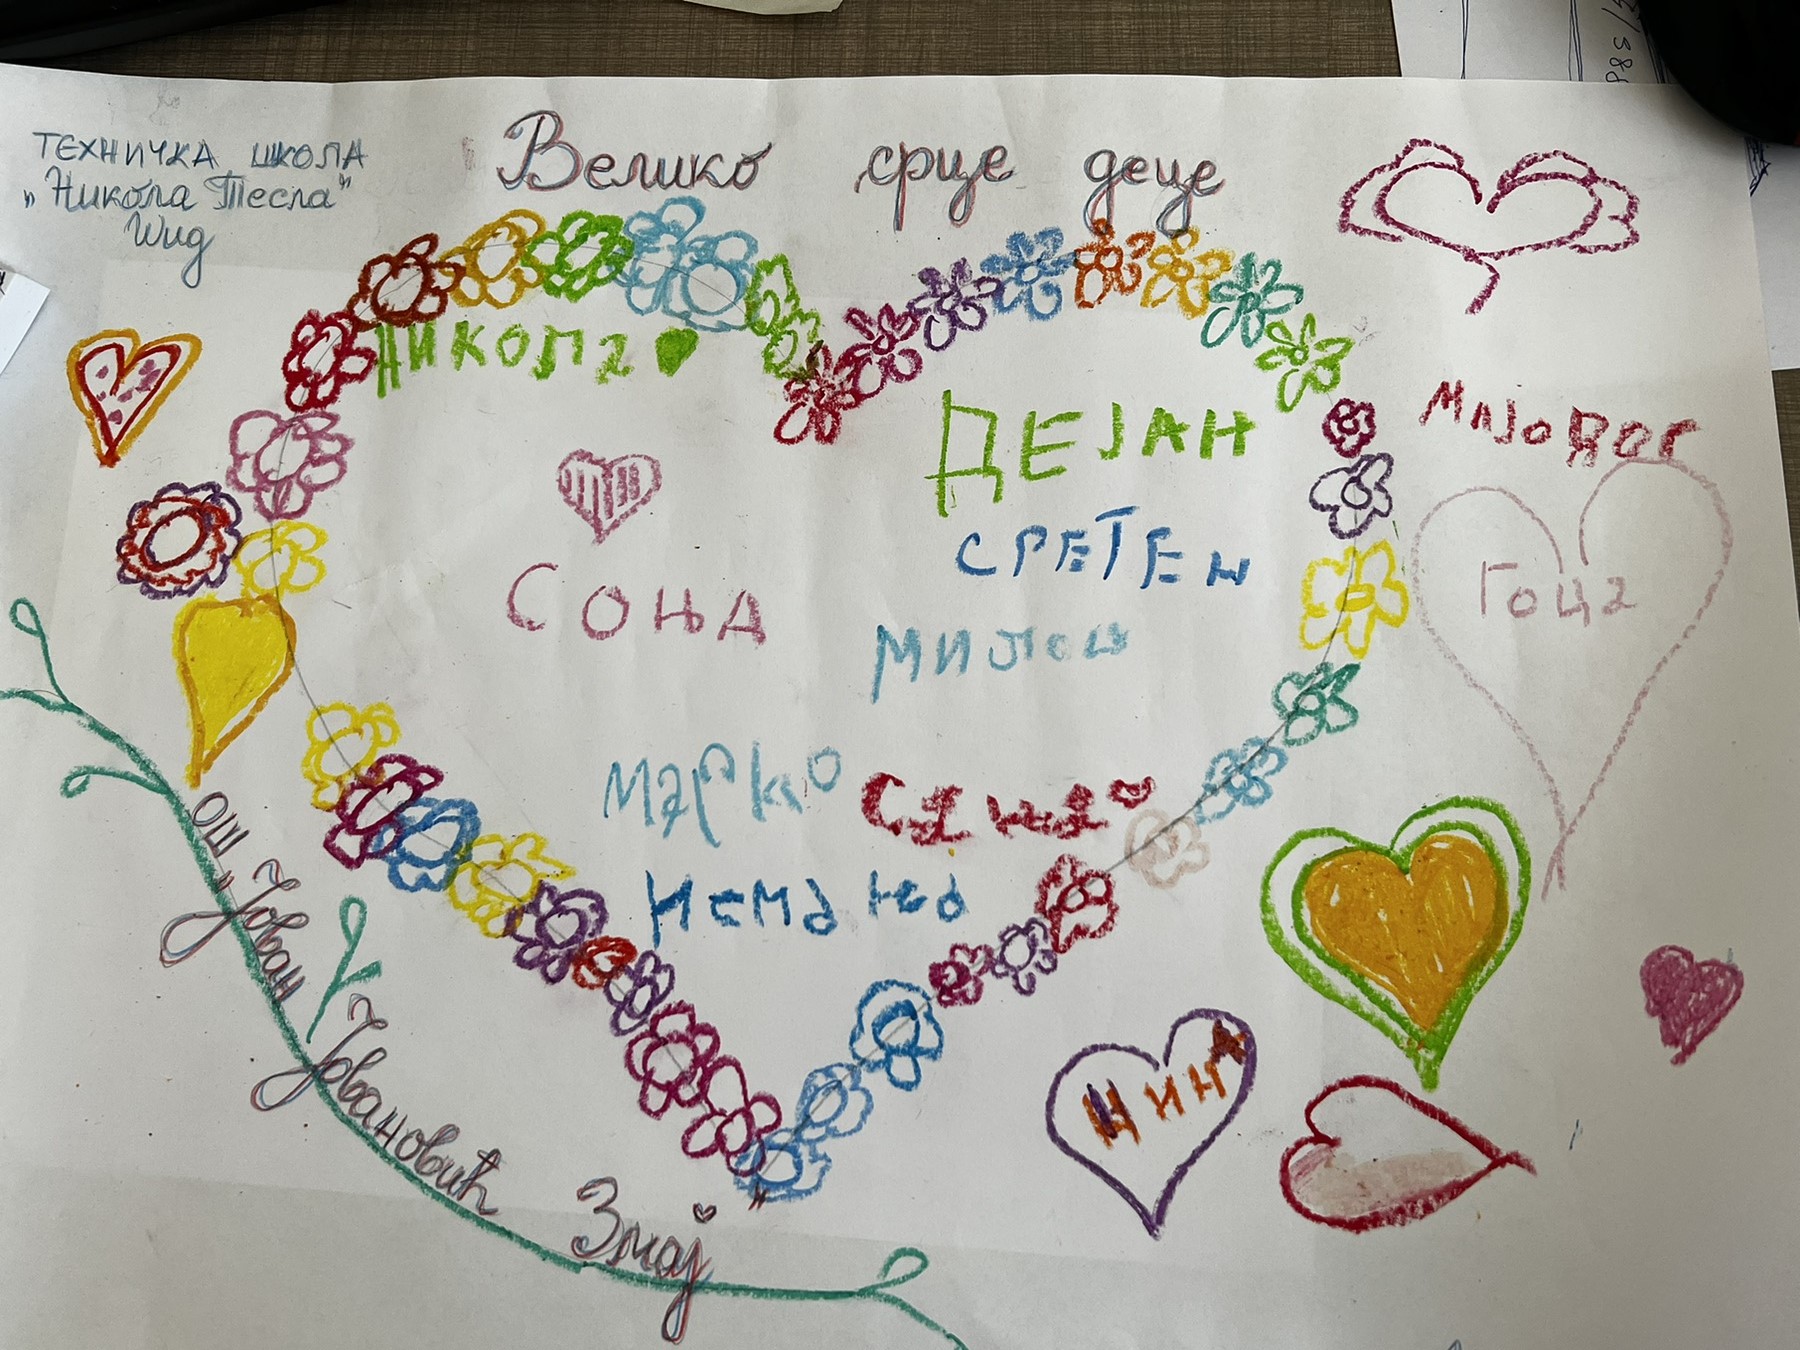 ТЕХНИЧКА ШКОЛА
„Никола Тесла"
Шид
Велико срце деце
НИКОЛа
ДЕЈАН
СОЊА
СРЕТЕН
МИЛОШ
Гоца
Марко
Сања
НЕМАЊА
ЦИНА
ОШ „Јован Јовановић Змај"